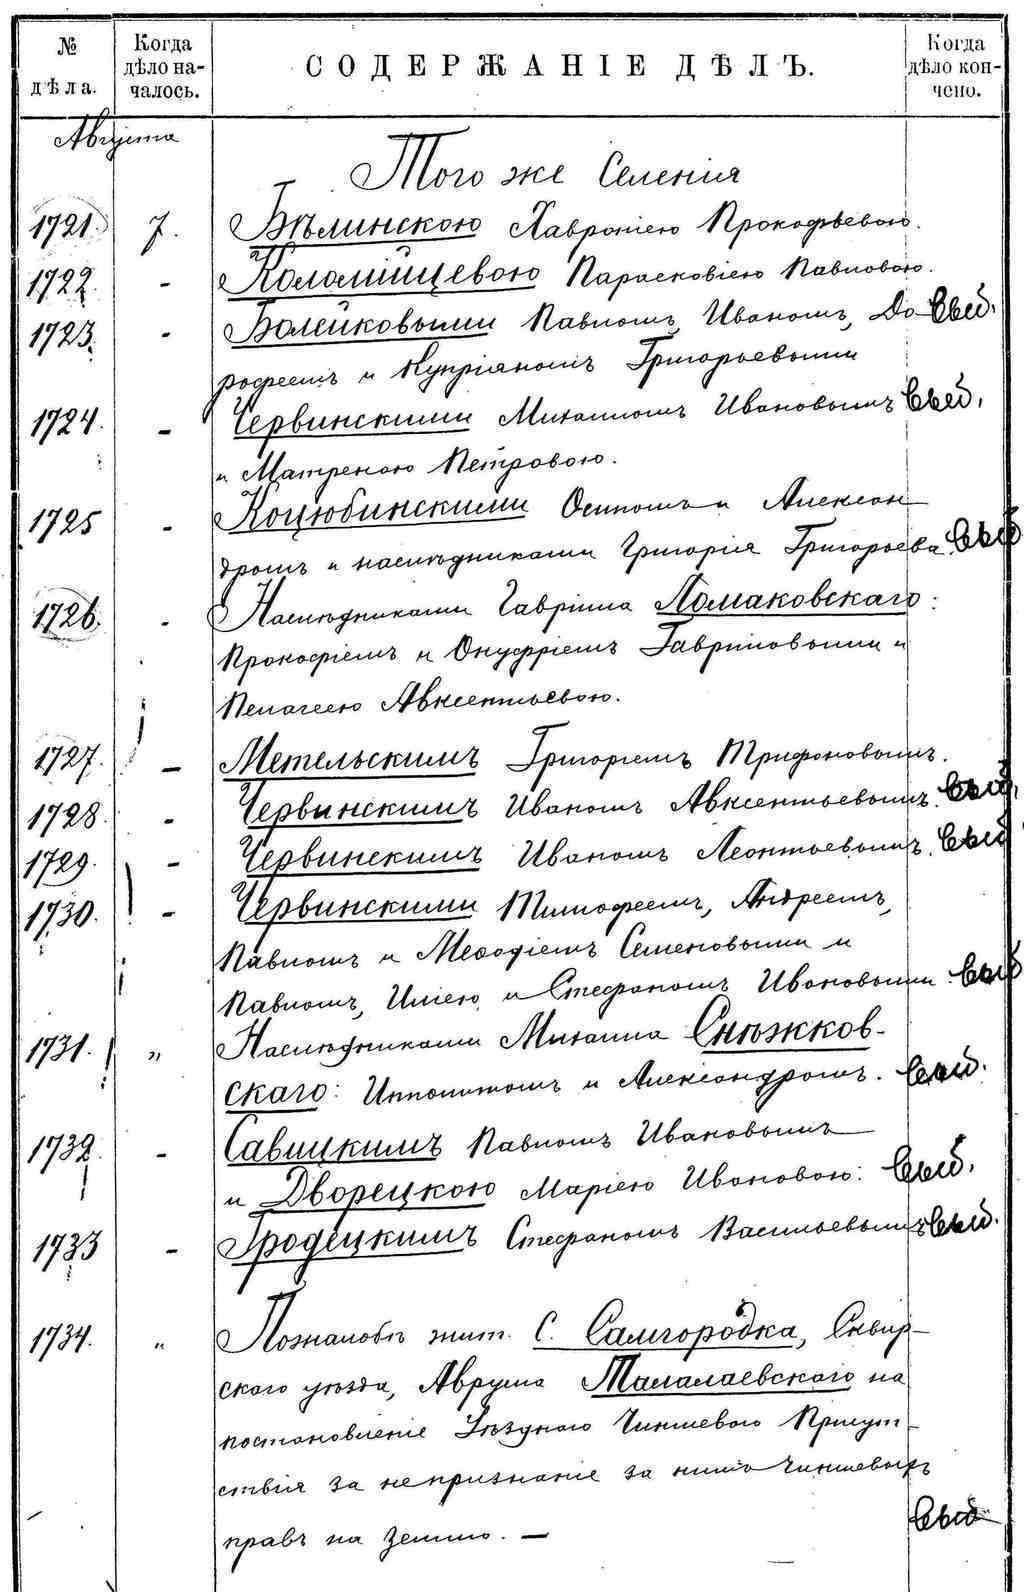 № дѣла.
Когда дѣло началось.
СОДЕРЖАНІЕ ДѢЛЪ.
Когда дѣло кончено.
Августа
Того же Селенія
1721. 7. Бѣлинскою Хавроніею Прокофьевою.
1722. - Коломійцевою Парасковіею Павловою.
1723. - Болейковыми Павломъ, Иваномъ, До-
рофеемъ и Купріяномъ Григорьевыми
1724. - Червинскими Михаиломъ Ивановымъ
и Матреною Петровою.
1725 - Коцюбинскими Осипомъ и Алексан
дромъ и наслѣдниками Григорія Григорьева.
1726. - Наслѣдниками Гавріила Ломаковскаго:
Прокофіемъ и Онуфріемъ Гавриловыми и
Пелагеею Авксентьевою.
1727. - Метельскимъ Григоріемъ Трифоновымъ.
1728. - Червинскимъ Иваномъ Авксентьевымъ.
1729. - Червинскимъ Иваномъ Леонтьевымъ.
1730. - Червинскими Тимофеемъ, Андреемъ,
Павломъ и Мефодіемъ Семеновыми и
Павломъ, Иліею и Стефаномъ Ивановыми.
1731. " Наслѣдниками Михаила Снѣжков-
скаго: Ипполитомъ и Александромъ.
1732. - Савицкимъ Павломъ Ивановымъ
и Дворецкою Маріею Ивановою:
1733 - Гродецкимъ Стефаномъ Васильевымъ
1734. " По жалобѣ жит. С. Самгородка, Сквир-
скаго уѣзда, Аврума Талалаевскаго на
постановленіе Уѣзднаго Чиншевого Присут-
ствія за непризнаніе за нимъ чиншевыхъ
правъ на землю. —